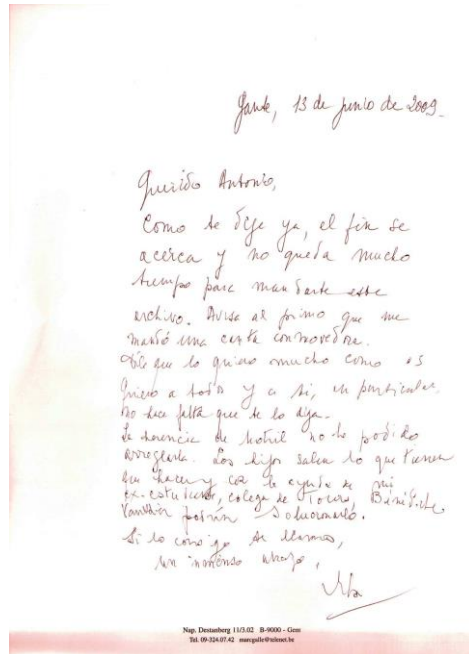 Gante, 13 de junio de 2009.
Querido Antonio,
Como te dije ya, el fin se
acerca y no queda mucho
tiempo para mandarte este
archivo. Avisa al primo que me
mandó una carta conmovedora.
Dile que lo quiero mucho como os
quiero a todos y a ti, en particular,
no hace falta que te lo diga.
La herencia de Motril no he podido
arreglarla. Los hijos saben lo que tienen
que hacer y con la ayuda de mi
ex-estudiante, colega de Tours, Bénédicte
Vauthier podrán solucionarlo.
Si lo consigo te llamaré,
un inmenso abrazo,
Nap. Destanberg 11/3.02 B-9000 - Gent
Tel. 09-324.07.42 marcgalle@telenet.be